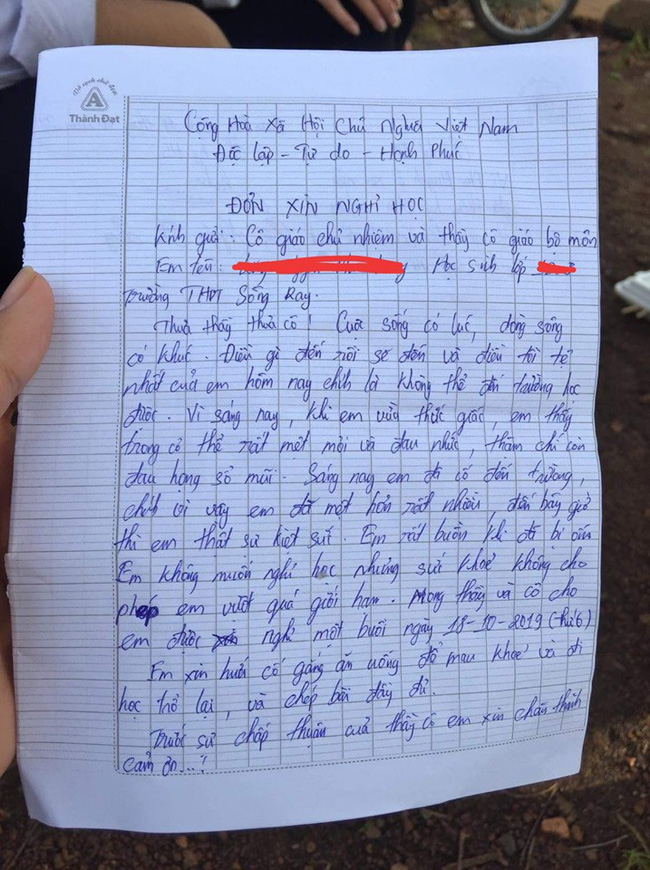 Vở sạch chữ đẹp
A
Thành Đạt
Cộng Hoà Xã Hội Chủ Nghĩa Việt Nam
Độc lập - Tự do - Hạnh Phúc
ĐƠN XIN NGHỈ HỌC
Kính gửi: Cô giáo chủ nhiệm và thầy cô giáo bộ môn
Em tên: Học sinh lớp
Trường THPT Sông Ray.
Thưa thầy thưa cô! Cuộc sống có lúc, dòng sông
có khúc. Điều gì đến rồi sẽ đến và điều tồi tệ
nhất của em hôm nay chính là không thể đến trường học
được. Vì sáng nay, khi em vừa thức giấc, em thấy
trong cơ thể rất mệt mỏi và đau nhức, thậm chí còn
đau họng sổ mũi. Sáng nay em đã cố đến trường,
chính vì vậy em đã mệt hơn rất nhiều, đến bây giờ
thì em thật sự kiệt sức. Em rất buồn khi đã bị ốm
Em không muốn nghỉ học nhưng sức khoẻ không cho
phép em vượt quá giới hạn. Mong thầy và cô cho
em được nghỉ một buổi ngày 18-10-2019 (thứ 6)
Em xin hứa cố gắng ăn uống để mau khoẻ và đi
học trở lại, và chép bài đầy đủ.
Trước sự chấp thuận của thầy cô em xin chân thành
cảm ơn...!